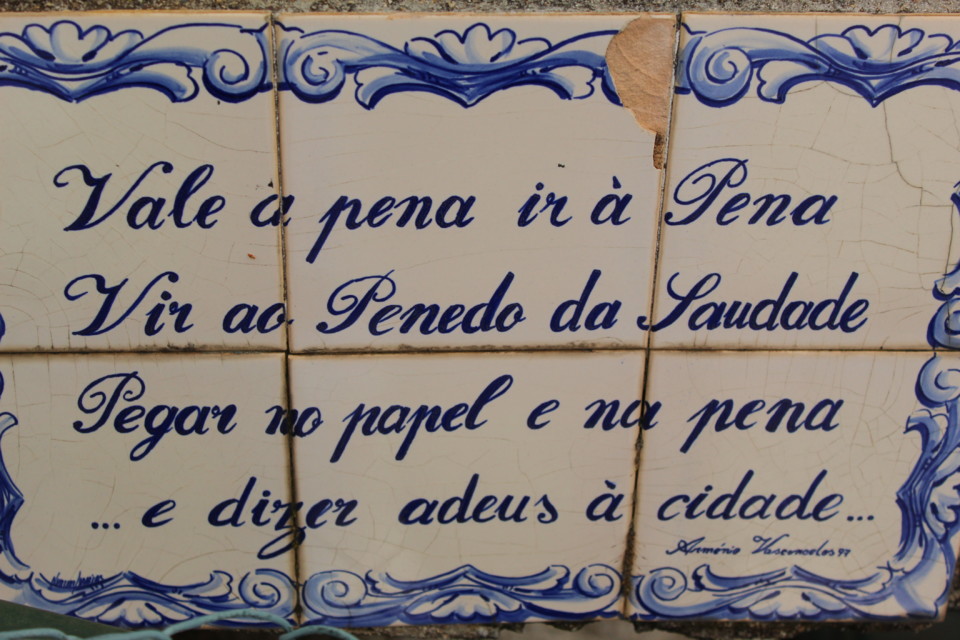 Vale a pena ir à Pena
Vir ao Penedo da Saudade
Pegar no papel e na pena
... e dizer adeus à cidade...
Arménio Vasconcelos 97